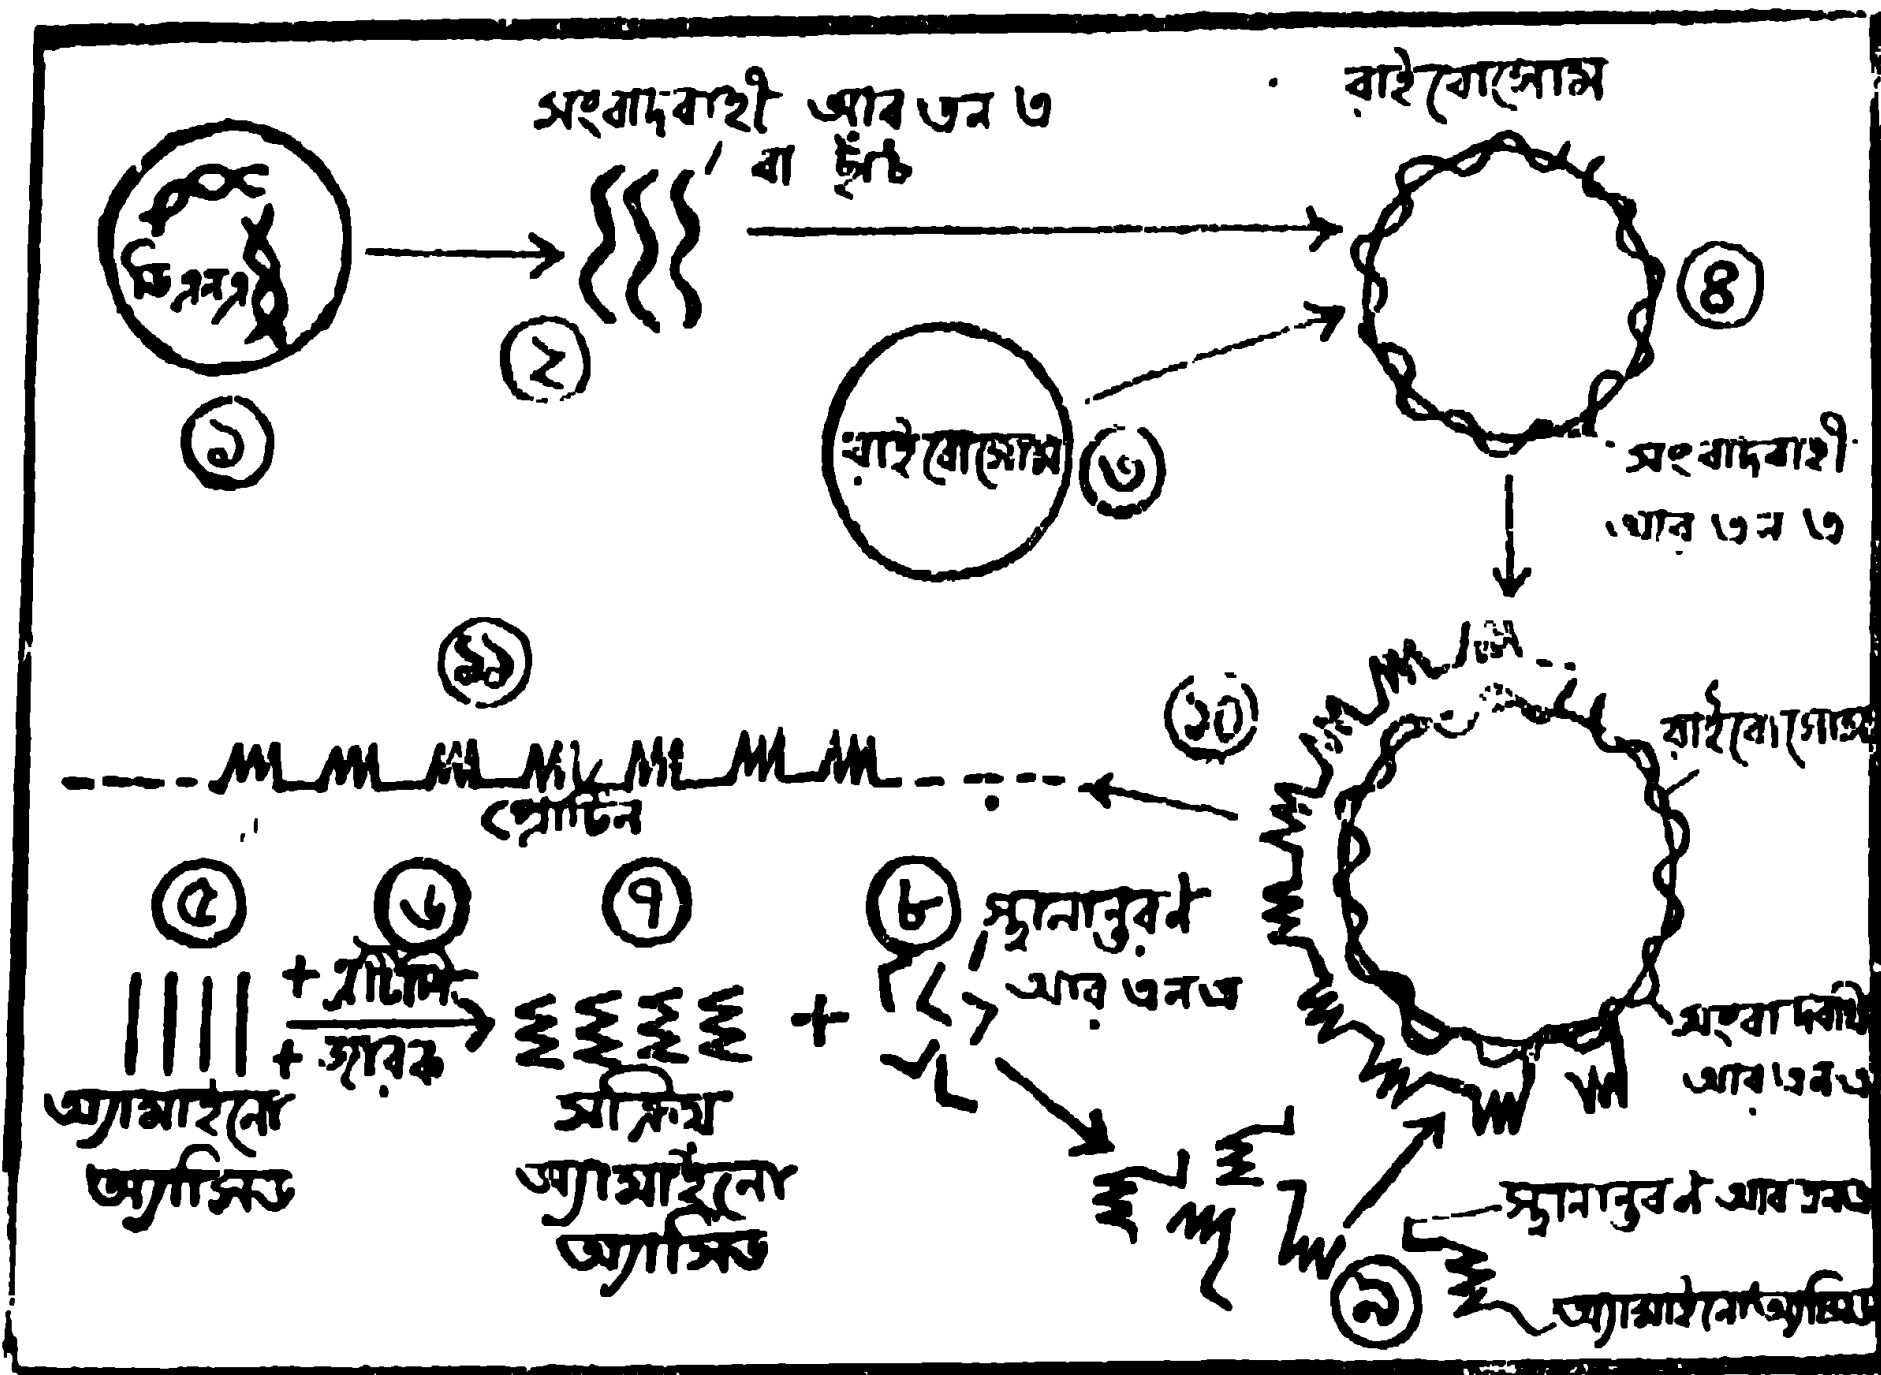 সংবাদবাহী আর এন এ
বা ছাঁচ
রাইবোসোম
ডিএনএ
২
৪
১
রাইবোসোম
৩
সংবাদবাহী
আর এন এ
১১
১০
রাইবোসোম
প্রোটিন
৫
৬
৭
৮
স্থানান্তরণ
আর এনএ
+ এটিপি
+ জারক
+
অ্যামাইনো
অ্যাসিড
সক্রিয়
অ্যামাইনো
অ্যাসিড
আর এনএ
স্থানান্তরণ আর এনএ
৯
অ্যামাইনো অ্যাসিড